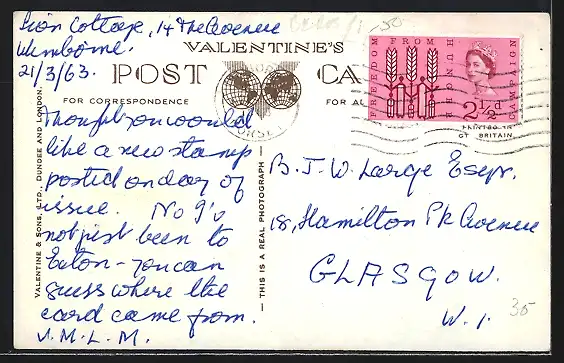 Lion Cottage, 14 The Avenue
Wimborne.
21/3/63.
VALENTINE'S
POST CA
FOR CORRESPONDENCE
FOR A
Thought you would
like a new stamp
posted on day of
issue. No I've
not just been to
Eaton - you can
guess where the
card came from.
V.M.L.M.
VALENTINE & SONS, LTD., DUNDEE AND LONDON.
— THIS IS A REAL PHOTOGRAPH —
FREEDOM FROM HUNGER CAMPAIGN
2½d
PRINTED IN
GT BRITAIN
B. J. W. Large Esqr.
18, Hamilton Pk Avenue
GLASGOW.
W.1